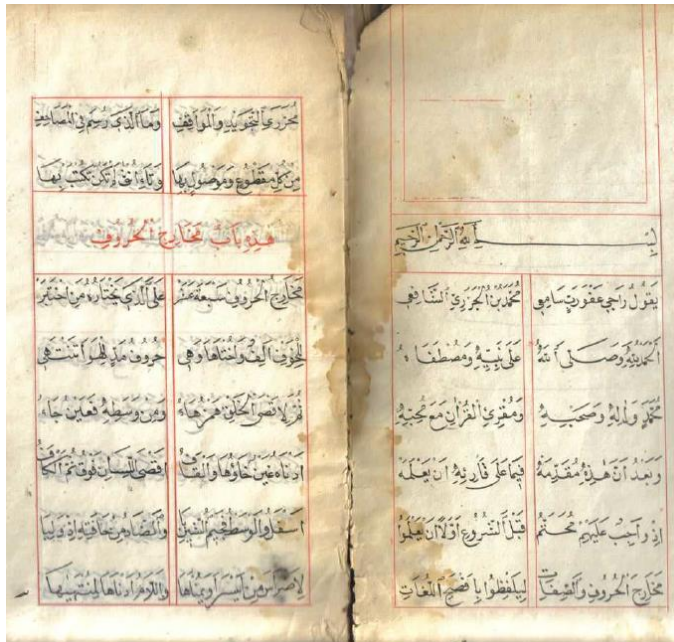 بسم الله الرحمن الرحيم
يقول راجي عفو رب سامعي محمد بن الجزري الشافعي
الحمد لله وصلى الله على نبيه ومصطفاه
محمد وآله وصحبه ومقرئ القرآن مع محبه
وبعد ان هذه مقدمه فيما على قارئه ان يعلمه
اذ واجب عليهم محتم قبل الشروع اولا ان يعلموا
مخارج الحروف والصفات ليلفظوا بافصح اللغات
محرري التجويد والمواقف وما الذي رسم في المصاحف
من كل مقطوع وموصول بها وتاء انثى لم تكن تكتب بها
هذه باب مخارج الحروف
مخارج الحروف سبعة عشر على الذي يختاره من اختبر
للجوف الف واختاها وهي حروف مد للهواء تنتهي
ثم لاقصى الحلق همز هاء ومن وسطه فعين حاء
ادناه غين خاؤها والقاف اقصى اللسان فوق ثم الكاف
اسفل والوسط فجيم الشين يا والضاد من حافته اذ وليا
لاضراس من ايسر او يمناها واللام ادناها لمنتهاها